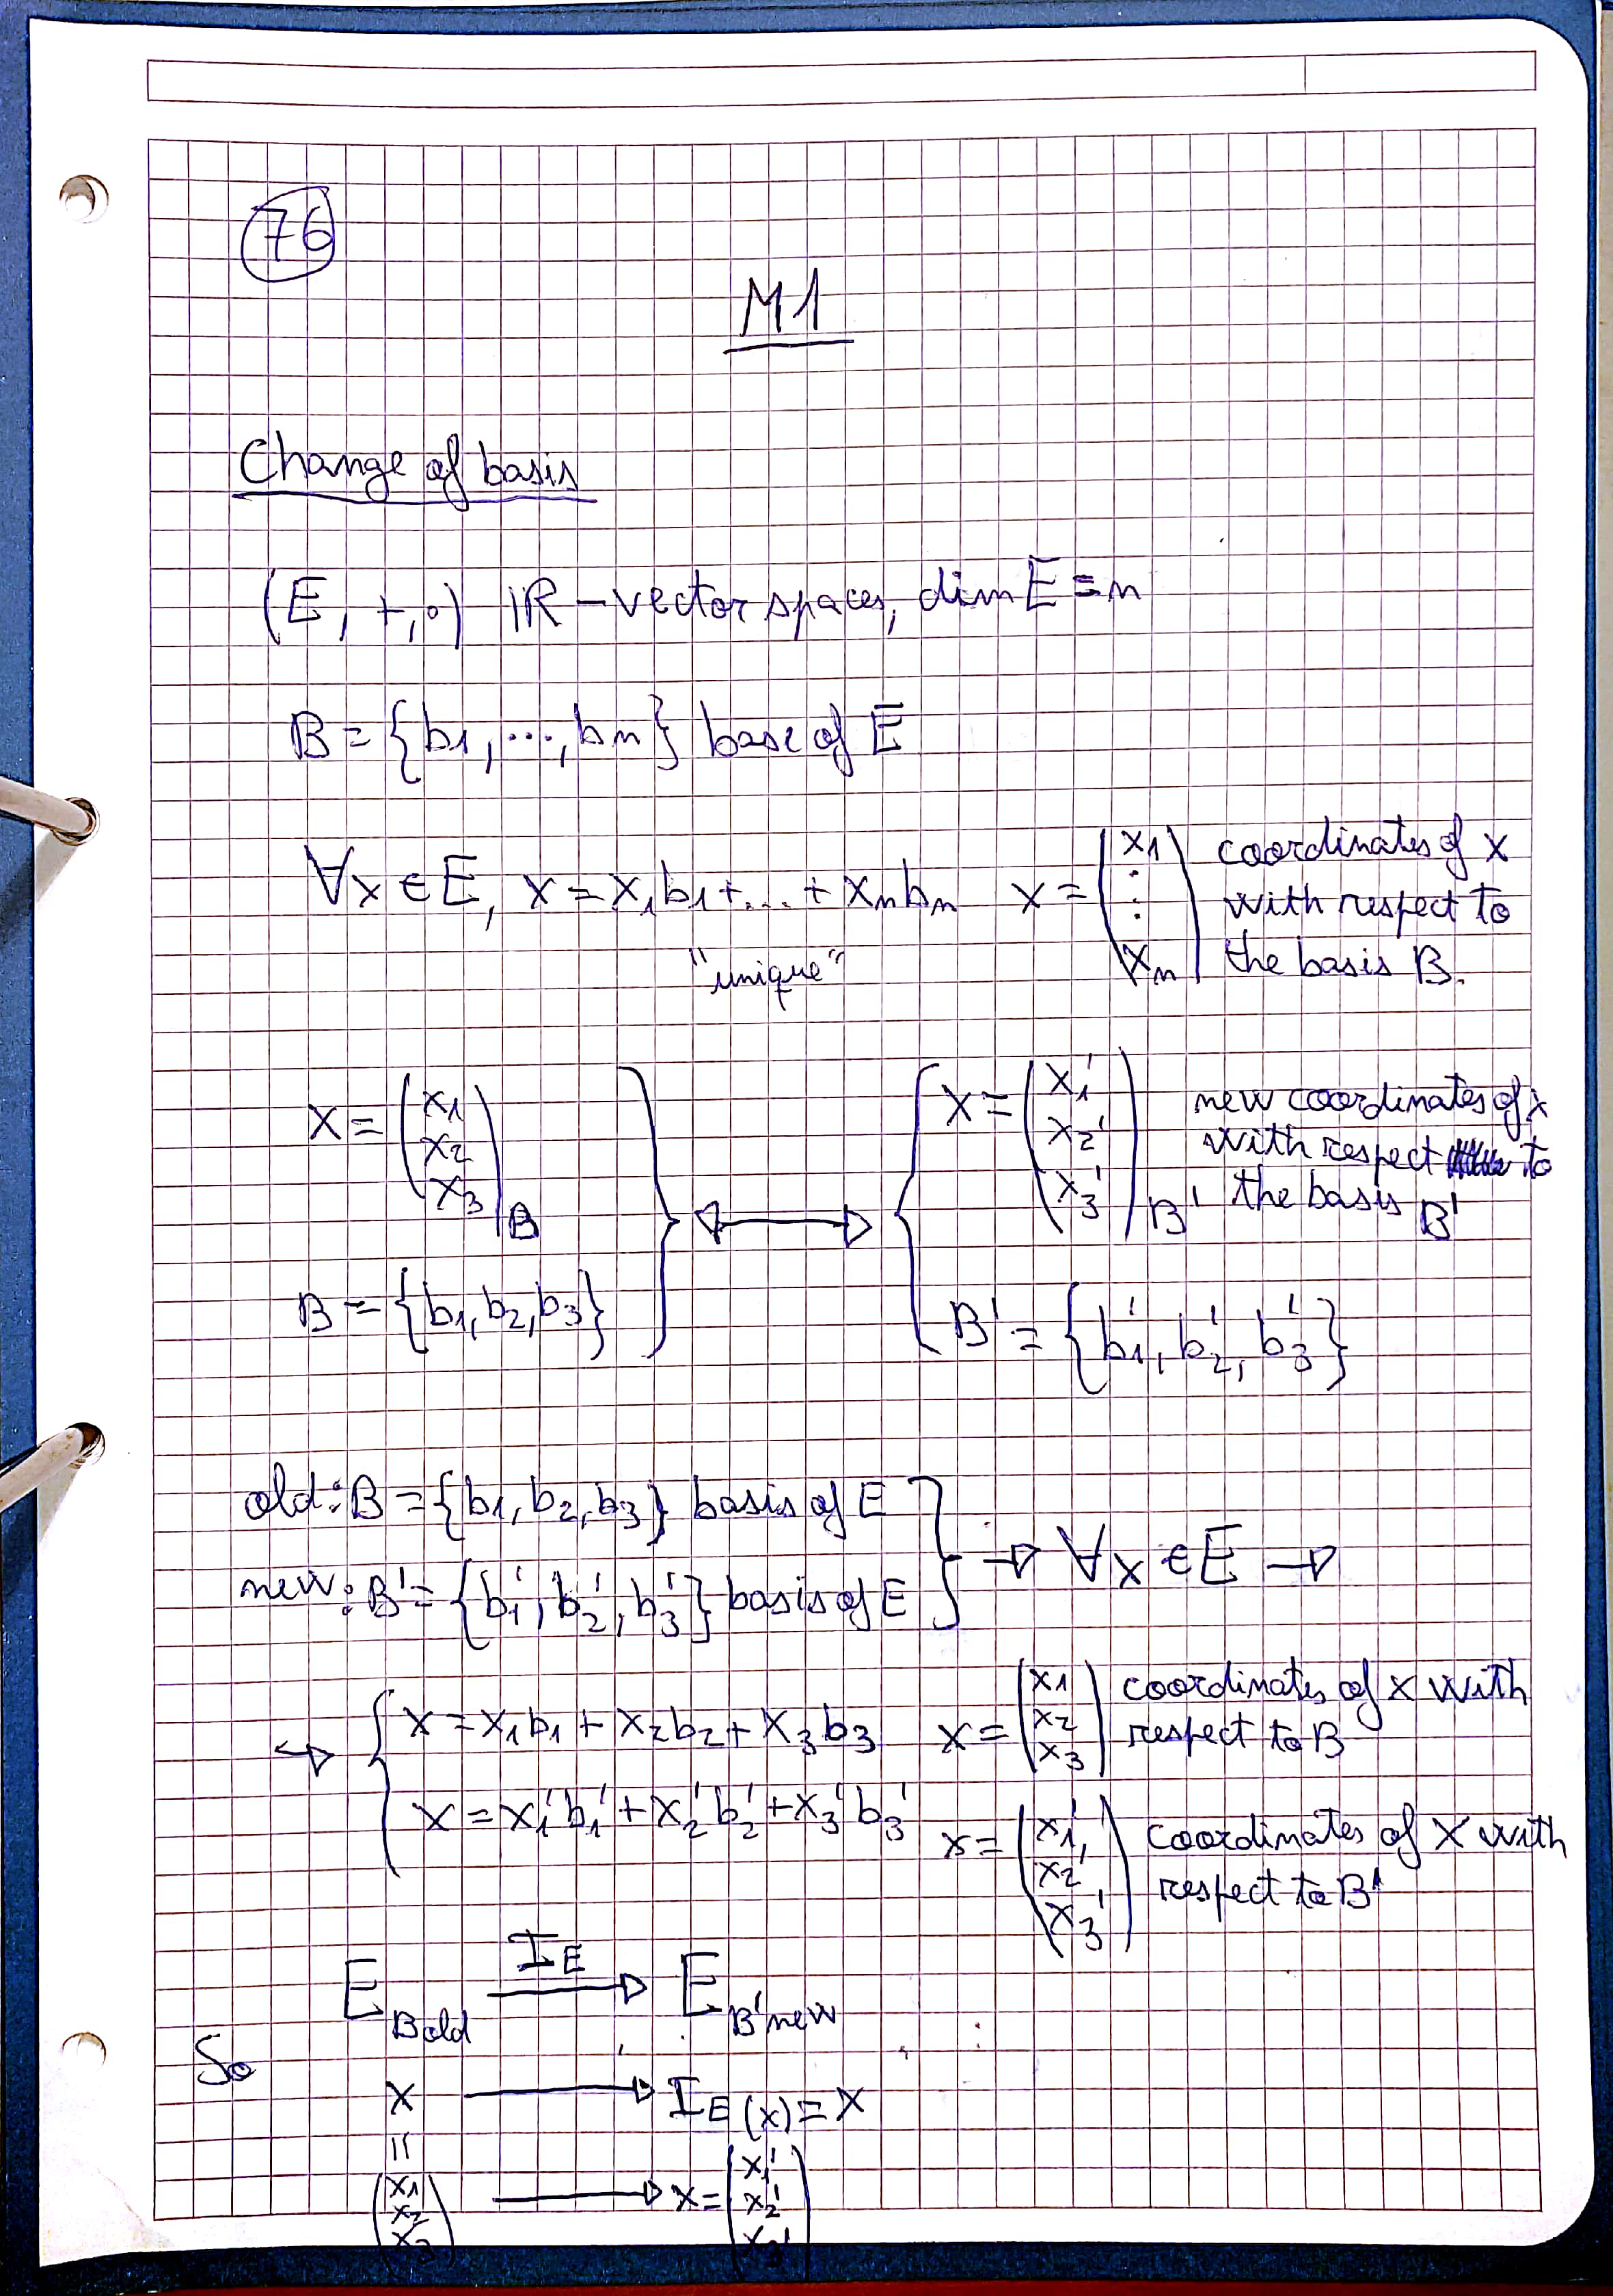 76
M1
Change of basis
(E, +, ∘) ℝ-vector spaces, dim E = n
B = {b1, ..., bn} base of E
∀x ∈ E, x = x1b1 + ... + xnbn x = (x1 ⋮ xn) coordinates of x with respect to the basis B.
"unique"
x = (x1 x2 x3)B ↔ x = (x1' x2' x3')B' new coordinates of x with respect to the basis B'
B = {b1, b2, b3} B' = {b1', b2', b3'}
old: B = {b1, b2, b3} basis of E
new: B' = {b1', b2', b3'} basis of E } → ∀x ∈ E →
→ { x = x1b1 + x2b2 + x3b3 x = (x1 x2 x3) coordinates of x with respect to B
x = x1'b1' + x2'b2' + x3'b3' x = (x1' x2' x3') coordinates of x with respect to B'
E B old —I E→ E B' new
So
x → I E (x) = x
=
(x1 x2 x3) → x = (x1' x2' x3')